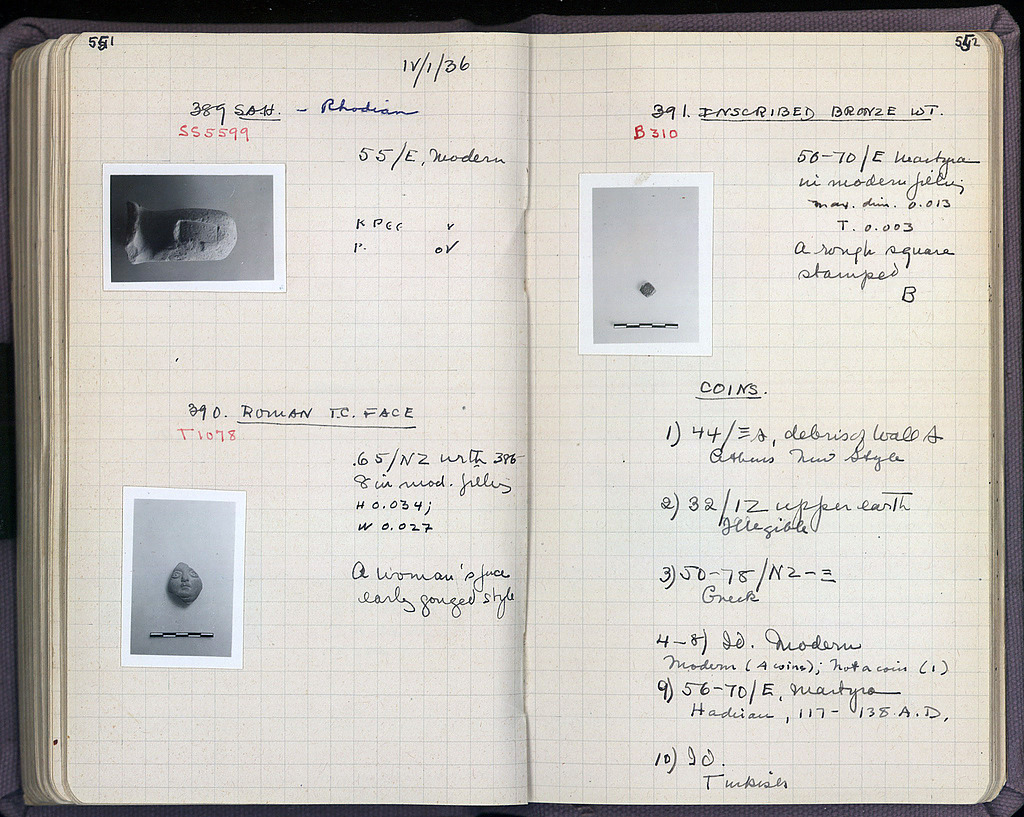 551
IV/1/36
389 S.A.H. - Rhodian
SS5599
55/E, Modern
ΚΡΕϹ
390. ROMAN T.C. FACE
T1078
.65/NZ with 386-
8 in mod. filling
H 0.034;
W 0.027
A woman's face
early gouged style
552
391. INSCRIBED BRONZE WT.
B310
56-70/E Martyra
in modern filling
max. dim. 0.013
T. 0.003
A rough square
stamped
B
COINS.
1) 44/ΞΑ, debris of Wall A
Athens New Style
2) 32/ΙΖ upper earth
Illegible
3) 50-78/NZ-Ξ
Greek
4-8) Id. Modern
Modern (4 coins); Not a coin (1)
9) 56-70/E, Martyra
Hadrian, 117-138 A.D.
10) Id.
Turkish